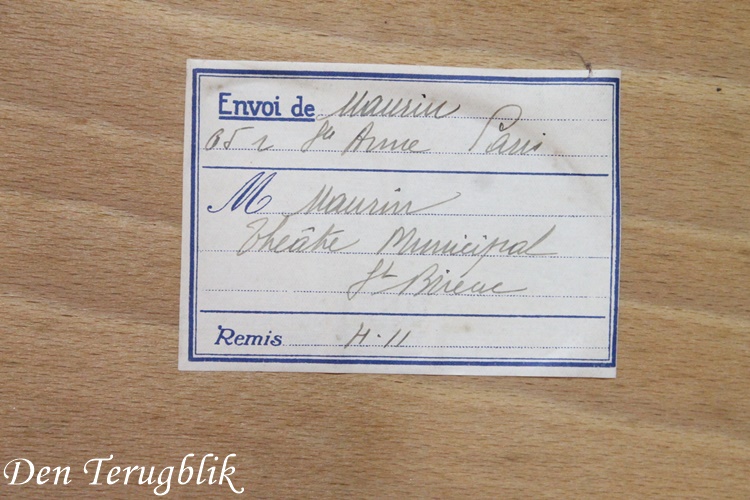 Envoi de Maurin
65 r Ste Anne Paris
M Maurin
Théâtre Municipal
St Brieuc
Remis 4.11
Den Terugblik